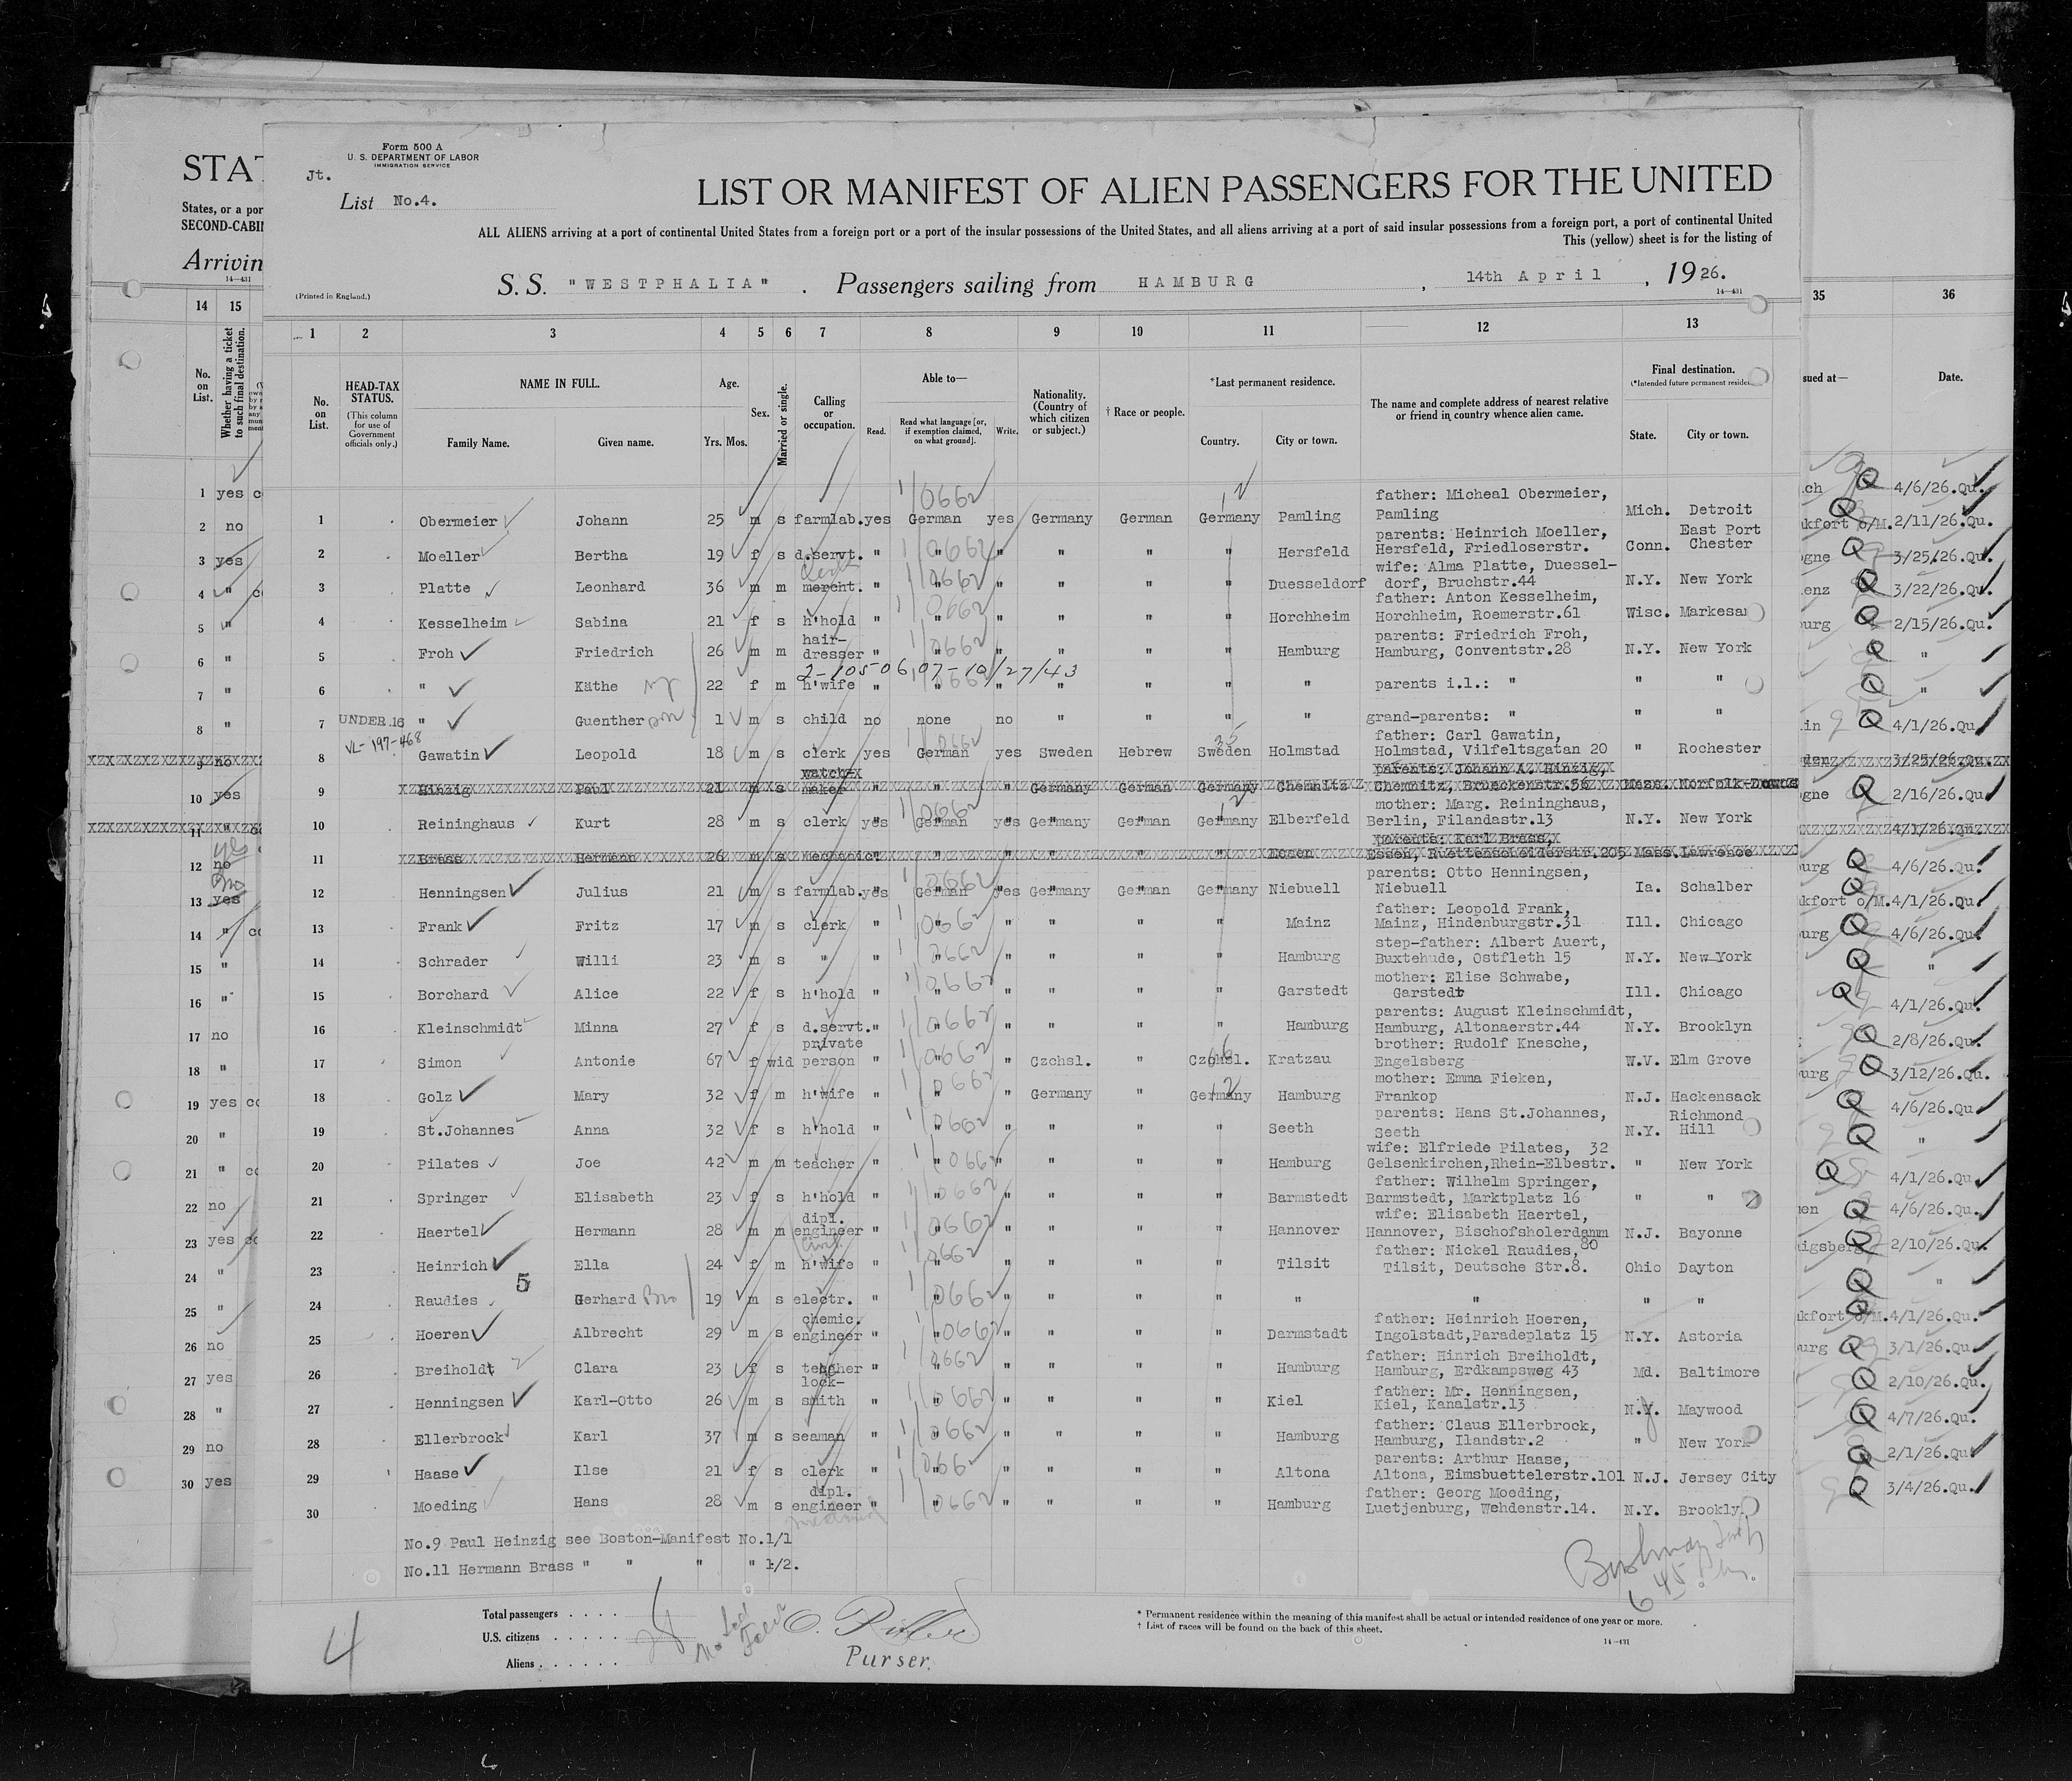 Form 500 A
U. S. DEPARTMENT OF LABOR
IMMIGRATION SERVICE
Jt.
List No.4.
LIST OR MANIFEST OF ALIEN PASSENGERS FOR THE UNITED
ALL ALIENS arriving at a port of continental United States from a foreign port or a port of the insular possessions of the United States, and all aliens arriving at a port of said insular possessions from a foreign port, a port of continental United
This (yellow) sheet is for the listing of
S. S. "WESTPHALIA" . Passengers sailing from HAMBURG , 14th April , 1926.
(Printed in England.)
14—431
1 2 3 4 5 6 7 8 9 10 11 12 13
No. on List.
HEAD-TAX STATUS.
(This column for use of Government officials only.)
NAME IN FULL.
Family Name. Given name.
Age.
Yrs. Mos.
Sex.
Married or single.
Calling or occupation.
Able to—
Read. Read what language [or, if exemption claimed, on what ground]. Write.
Nationality. (Country of which citizen or subject.)
† Race or people.
*Last permanent residence.
Country. City or town.
The name and complete address of nearest relative or friend in country whence alien came.
Final destination.
(*Intended future permanent reside
State. City or town.
father: Micheal Obermeier,
1 Obermeier Johann 25 m s farmlab. yes German yes Germany German Germany Pamling Pamling Mich. Detroit
parents: Heinrich Moeller, East Port
2 Moeller Bertha 19 f s d.servt. " " " " " " Hersfeld Hersfeld, Friedloserstr. Conn. Chester
wife: Alma Platte, Duessel-
3 Platte Leonhard 36 m m mercht. " " " " " " Duesseldorf dorf, Bruchstr.44 N.Y. New York
father: Anton Kesselheim,
4 Kesselheim Sabina 21 f s h'hold " " " " " " Horchheim Horchheim, Roemerstr.61 Wisc. Markesan
hair- parents: Friedrich Froh,
5 Froh Friedrich 26 m m dresser " " " " " " Hamburg Hamburg, Conventstr.28 N.Y. New York
2-105-06,07-10/27/43
6 " Käthe 22 f m h'wife " " " " " " " parents i.l.: " " "
7 UNDER 16 " Guenther 1 m s child no none no " " " " grand-parents: " " "
VL-197-468
father: Carl Gawatin,
8 Gawatin Leopold 18 m s clerk yes German yes Sweden Hebrew Sweden Holmstad Holmstad, Vilfeltsgatan 20 " Rochester
watch- parents: Johann A. Hinzig,
9 Hinzig Paul 21 m s maker " " " Germany German Germany Chemnitz Chemnitz, Brueckenstr.56 Mass. Norfolk-Downs
mother: Marg. Reininghaus,
10 Reininghaus Kurt 28 m s clerk yes German yes Germany German Germany Elberfeld Berlin, Filandastr.13 N.Y. New York
parents: Karl Brass,
11 Brass Hermann 26 m s mechanic " " " " " " Essen Essen, Ruettenscheiderstr.205 Mass. Lawrence
parents: Otto Henningsen,
12 Henningsen Julius 21 m s farmlab. yes German yes Germany German Germany Niebuell Niebuell Ia. Schalber
father: Leopold Frank,
13 Frank Fritz 17 m s clerk " " " " " " Mainz Mainz, Hindenburgstr.31 Ill. Chicago
step-father: Albert Auert,
14 Schrader Willi 23 m s " " " " " " " Hamburg Buxtehude, Ostfleth 15 N.Y. New York
mother: Elise Schwabe,
15 Borchard Alice 22 f s h'hold " " " " " " Garstedt Garstedt Ill. Chicago
parents: August Kleinschmidt,
16 Kleinschmidt Minna 27 f s d.servt. " " " " " " Hamburg Hamburg, Altonaerstr.44 N.Y. Brooklyn
private brother: Rudolf Knesche,
17 Simon Antonie 67 f wid person " " " Czchsl. " Czchsl. Kratzau Engelsberg W.V. Elm Grove
mother: Emma Fieken,
18 Golz Mary 32 f m h'wife " " " Germany " Germany Hamburg Frankop N.J. Hackensack
parents: Hans St.Johannes, Richmond
19 St.Johannes Anna 32 f s h'hold " " " " " " Seeth Seeth N.Y. Hill
wife: Elfriede Pilates, 32
20 Pilates Joe 42 m m teacher " " " " " " Hamburg Gelsenkirchen,Rhein-Elbestr. " New York
father: Wilhelm Springer,
21 Springer Elisabeth 23 f s h'hold " " " " " " Barmstedt Barmstedt, Marktplatz 16 " "
dipl. wife: Elisabeth Haertel,
22 Haertel Hermann 28 m m engineer " " " " " " Hannover Hannover, Bischofsholerdamm N.J. Bayonne
father: Nickel Raudies, 80
23 Heinrich Ella 24 f m h'wife " " " " " " Tilsit Tilsit, Deutsche Str.8. Ohio Dayton
24 Raudies Gerhard 19 m s electr. " " " " " " " " " "
chemic. father: Heinrich Hoeren,
25 Hoeren Albrecht 29 m s engineer " " " " " " Darmstadt Ingolstadt,Paradeplatz 15 N.Y. Astoria
father: Hinrich Breiholdt,
26 Breiholdt Clara 23 f s teacher " " " " " " Hamburg Hamburg, Erdkampsweg 43 Md. Baltimore
lock- father: Mr. Henningsen,
27 Henningsen Karl-Otto 26 m s smith " " " " " " Kiel Kiel, Kanalstr.13 N.Y. Maywood
father: Claus Ellerbrock,
28 Ellerbrock Karl 37 m s seaman " " " " " " Hamburg Hamburg, Ilandstr.2 " New York
parents: Arthur Haase,
29 Haase Ilse 21 f s clerk " " " " " " Altona Altona, Eimsbuettelerstr.101 N.J. Jersey City
dipl. father: Georg Moeding,
30 Moeding Hans 28 m s engineer " " " " " " Hamburg Luetjenburg, Wehdenstr.14. N.Y. Brooklyn
No.9 Paul Heinzig see Boston-Manifest No.1/1
No.11 Hermann Brass " " " " 1/2.
Total passengers . . . .
U.S. citizens . . . . .
Aliens . . . . . .
4
Purser.
* Permanent residence within the meaning of this manifest shall be actual or intended residence of one year or more.
† List of races will be found on the back of this sheet.
14—431
STAT
States, or a por
SECOND-CABI
Arrivin
14—431
14 15
No. on List.
Whether having a ticket to such final destination.
1 yes
2 no
3 yes
4 "
5 "
6 "
7 "
8 "
9 no
10 yes
11 "
12 no
13 yes
14 "
15 "
16 "
17 no
18 "
19 yes
20 "
21 "
22 no
23 yes
24 "
25 "
26 no
27 yes
28 "
29 no
30 yes
35 36
sued at— Date.
ich Q 4/6/26.Qu.
kfort o/M. 2/11/26.Qu.
gne Q 3/25/26.Qu.
enz Q 3/22/26.Qu.
urg Q 2/15/26.Qu.
Q "
Q "
in Q 4/1/26.Qu.
den 3/25/26.Qu.
gne Q 2/16/26.Qu.
4/1/26.Qu.
urg Q 4/6/26.Qu.
kfort o/M. 4/1/26.Qu.
urg Q 4/6/26.Qu.
Q "
Q 4/1/26.Qu.
Q 2/8/26.Qu.
urg Q 3/12/26.Qu.
Q 4/6/26.Qu.
Q "
Q 4/1/26.Qu.
en Q 4/6/26.Qu.
igsberg Q 2/10/26.Qu.
Q "
kfort o/M. 4/1/26.Qu.
urg Q 3/1/26.Qu.
Q 2/10/26.Qu.
Q 4/7/26.Qu.
Q 2/1/26.Qu.
Q 3/4/26.Qu.